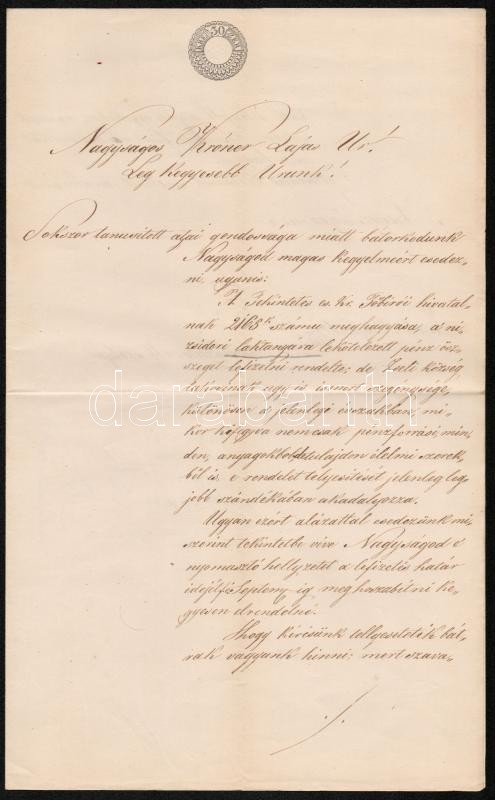 30
Nagyságos Króner Lajos Úr!
Leg kegyesebb Urunk!
Sokszor tanusitott atyai gondossága miatt bátorkodunk
Nagyságod magas kegyelmeért esedez-
ni, ugyanis:
A Tekintetes cs. kir. Főbírói hivatal-
nak 2168k számu meghagyása, a ni-
zsidori laktanyára lekötelezett pénz ösz-
szeget lefizetni rendelte; de község
ugy is ismert szegénysége,
különösen a jelenlegi évszakban, mi-
kor kifogyva nemcsak pénzforrási, min-
den, anyagokból tulajdon élelmi szerek-
ből is, e rendelet telyesitését jelenleg leg-
jobb szándékában akadályozza.
Ugyan ezért alázattal esedezünk mi-
szerint tekintetbe vive Nagyságod e
nyomasztó hellyzetet a lefizetés határ
idejét ig meghoszabitni ke-
gyesen elrendelné.
Hogy kérésünk tellyesitetik bát-
rak vagyunk hinni; mert szava-
darabanth